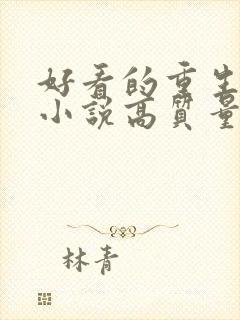 好看的重生
小说高质量
林青